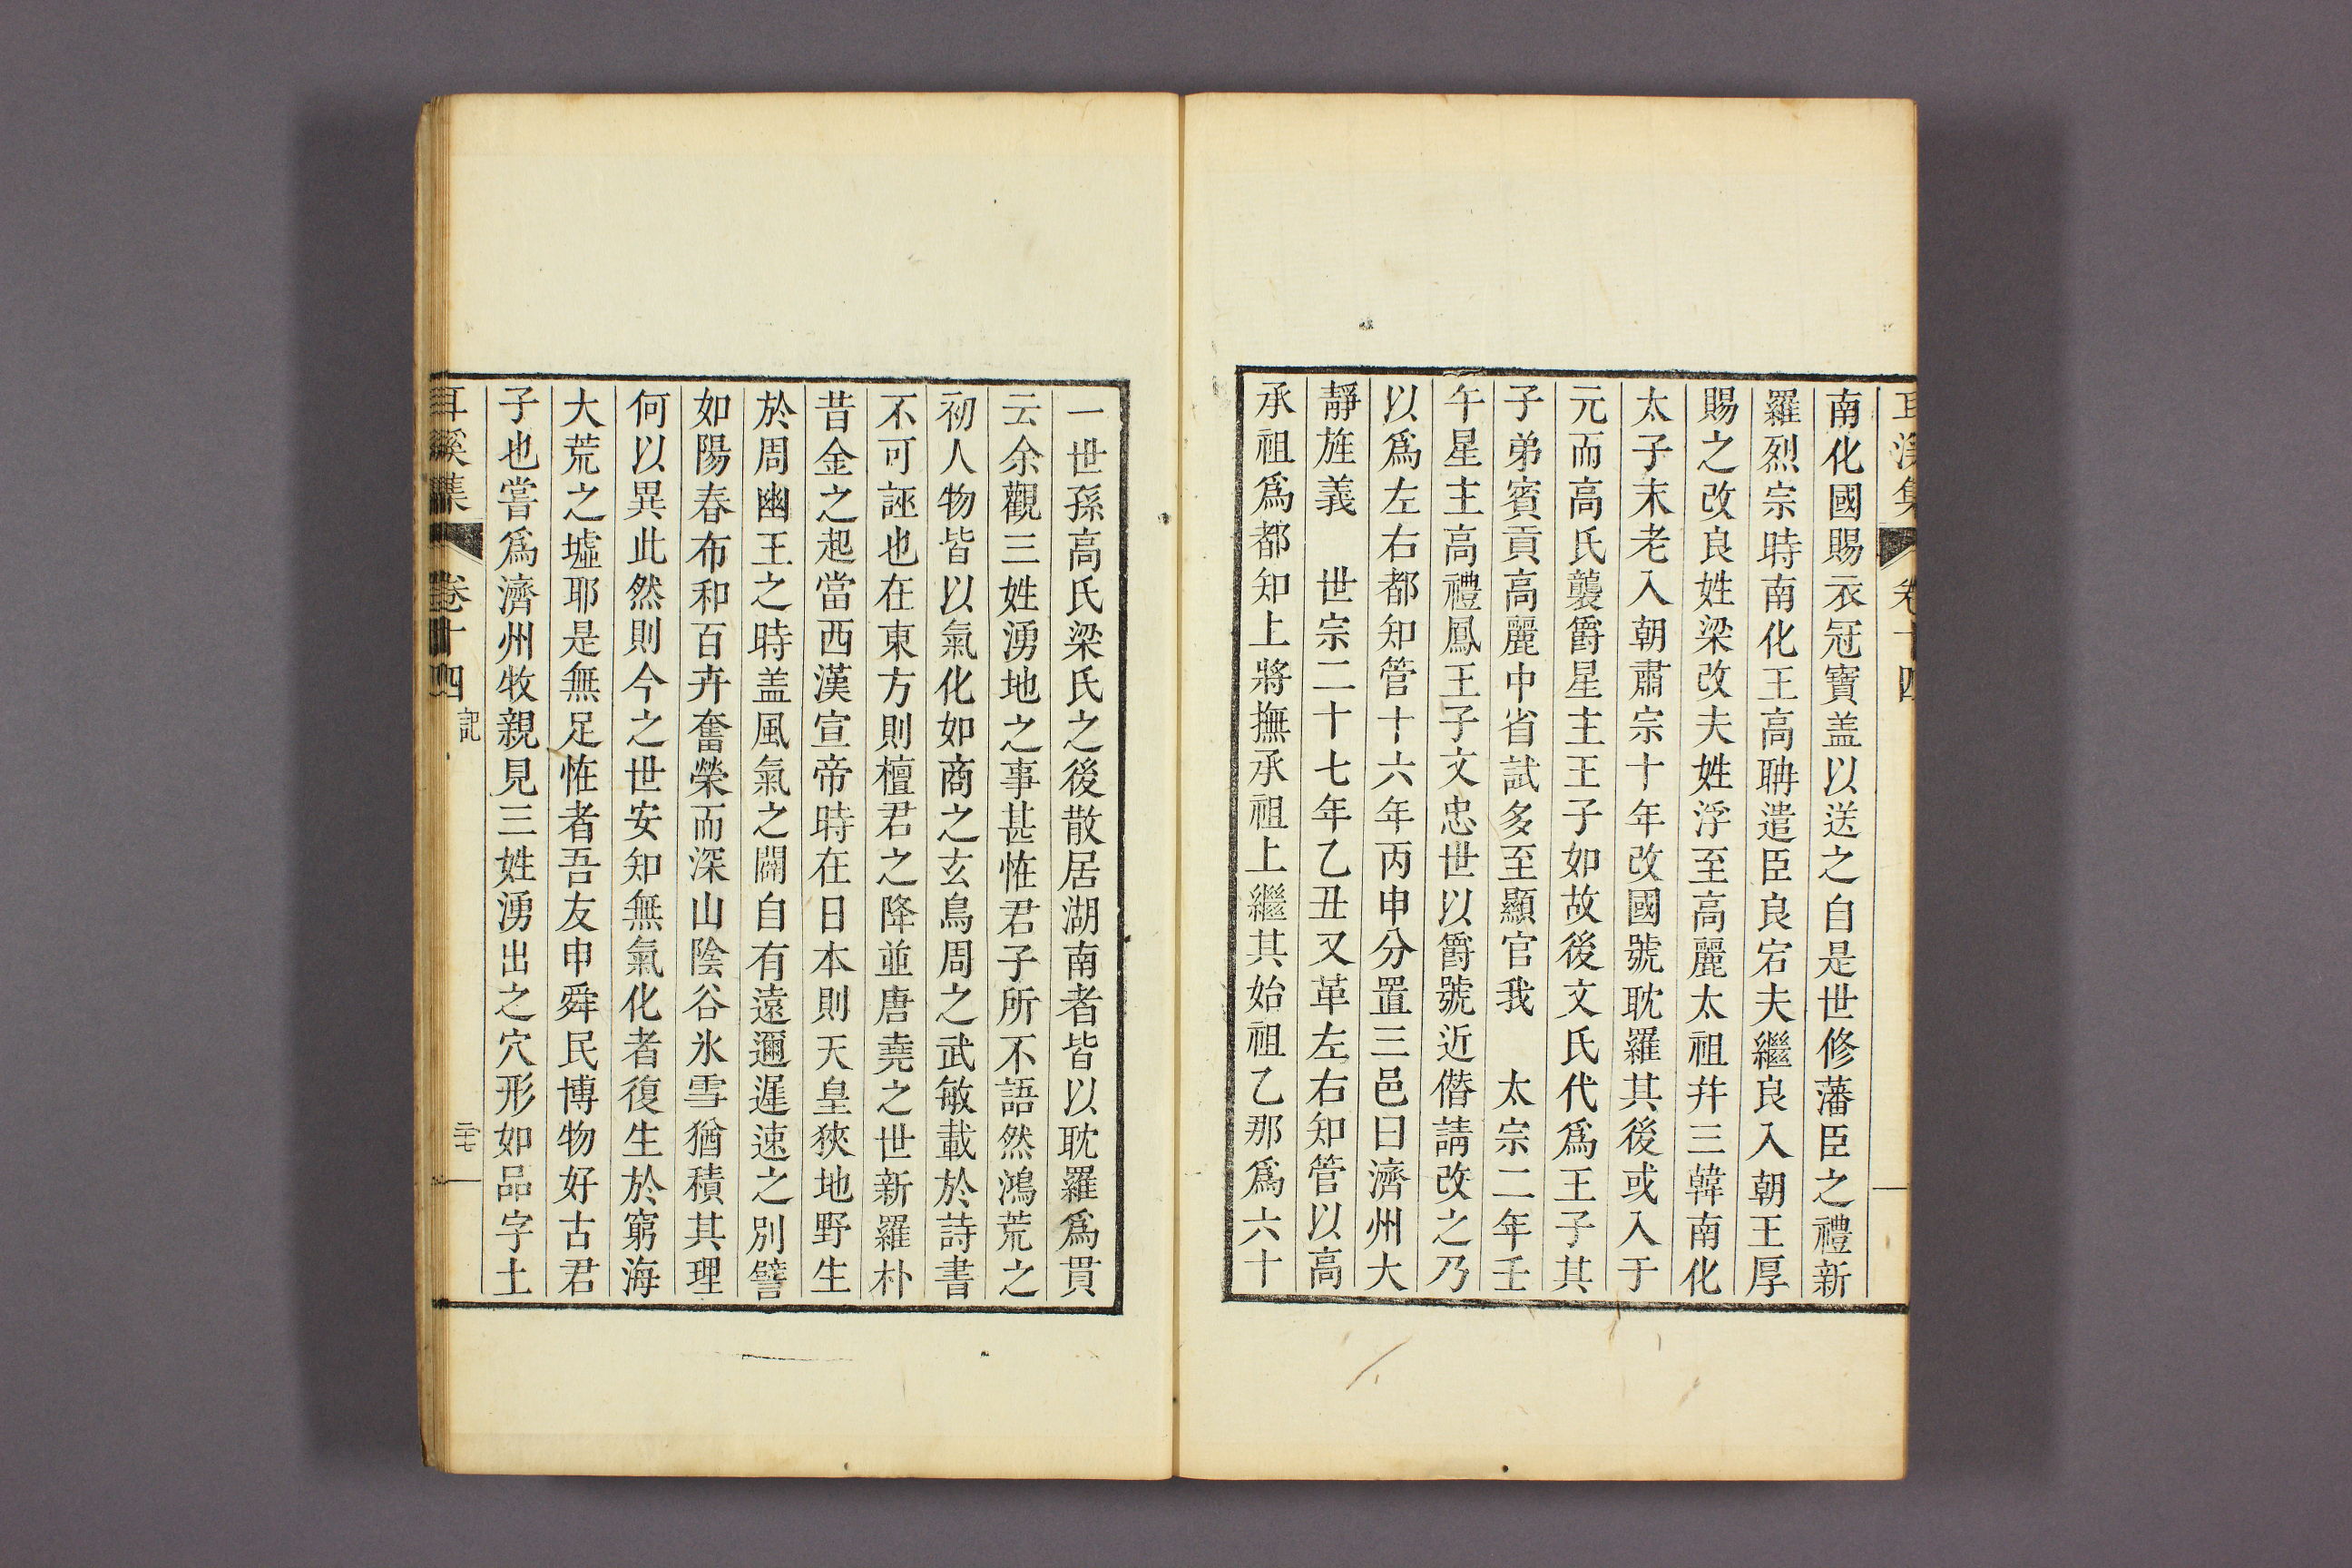 耳溪集 卷十四
南化國賜衣冠寶盖以送之自是世修藩臣之禮新
羅烈宗時南化王高聃遣臣良宕夫繼良入朝王厚
賜之改良姓梁改夫姓浮至高麗太祖幷三韓南化
太子末老入朝肅宗十年改國號耽羅其後或入于
元而高氏襲爵星主王子如故後文氏代爲王子其
子弟賓貢高麗中省試多至顯官我 太宗二年壬
午星主高禮鳳王子文忠世以爵號近僭請改之乃
以爲左右都知管十六年丙申分置三邑曰濟州大
靜旌義 世宗二十七年乙丑又革左右知管以高
承祖爲都知上將撫承祖上繼其始祖乙那爲六十
一世孫高氏梁氏之後散居湖南者皆以耽羅爲貫
云余觀三姓湧地之事甚恠君子所不語然鴻荒之
初人物皆以氣化如商之玄鳥周之武敏載於詩書
不可誣也在東方則檀君之降並唐堯之世新羅朴
昔金之起當西漢宣帝時在日本則天皇狹地野生
於周幽王之時盖風氣之闢自有遠邇遲速之別譬
如陽春布和百卉奮榮而深山陰谷氷雪猶積其理
何以異此然則今之世安知無氣化者復生於窮海
大荒之墟耶是無足恠者吾友申舜民博物好古君
子也嘗爲濟州牧親見三姓湧出之穴形如品字土
耳溪集 卷十四 記 二十七